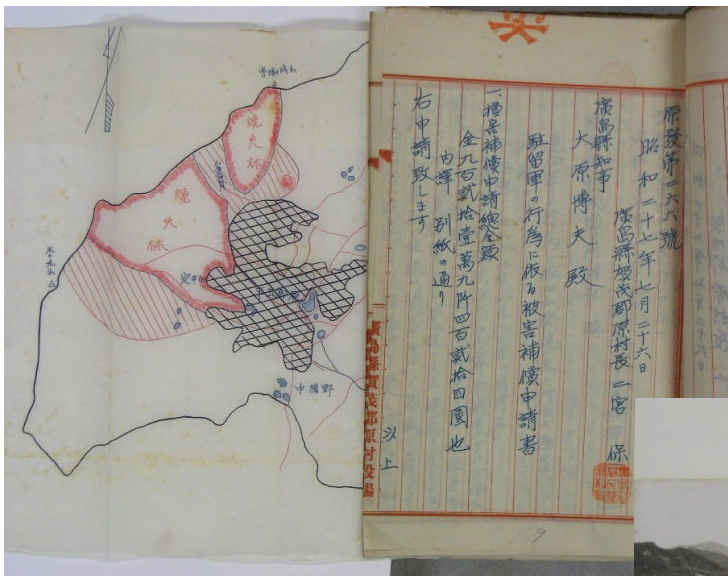 原發第二六六號
昭和二十七年七月二十六日
廣島縣賀茂郡原村長 二宮 保
廣島縣知事
大原博夫殿
駐留軍の行為に依る被害補償申請書
一、損害補償申請總金額
金九百貳拾壹萬九阡四百貳拾四圓也
内譯 別紙の通り
右申請致します
以上
廣島縣賀茂郡原村役場
燒失林
燒失林
中勝野